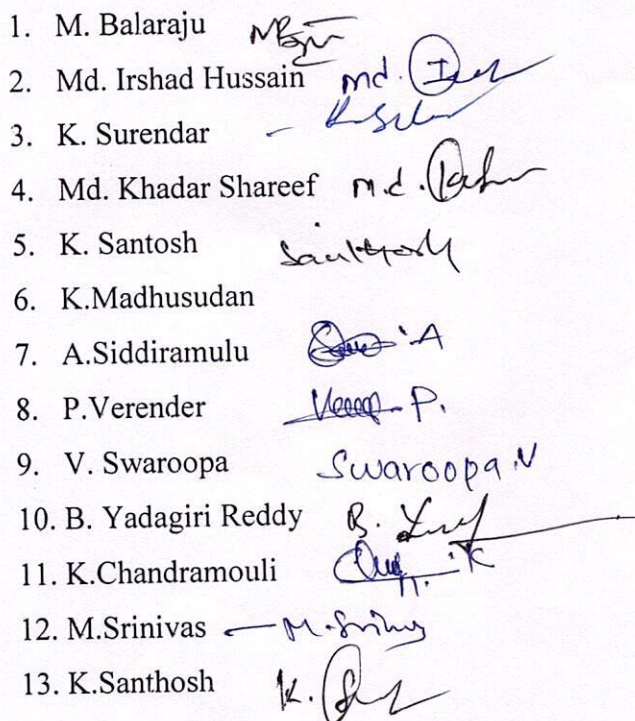 1. M. Balaraju
2. Md. Irshad Hussain md.
3. K. Surendar
4. Md. Khadar Shareef M.d.
5. K. Santosh Santhosh
6. K.Madhusudan
7. A.Siddiramulu A
8. P.Verender P.
9. V. Swaroopa Swaroopa.V
10. B. Yadagiri Reddy B.
11. K.Chandramouli K
12. M.Srinivas M.Srinivas
13. K.Santhosh K.